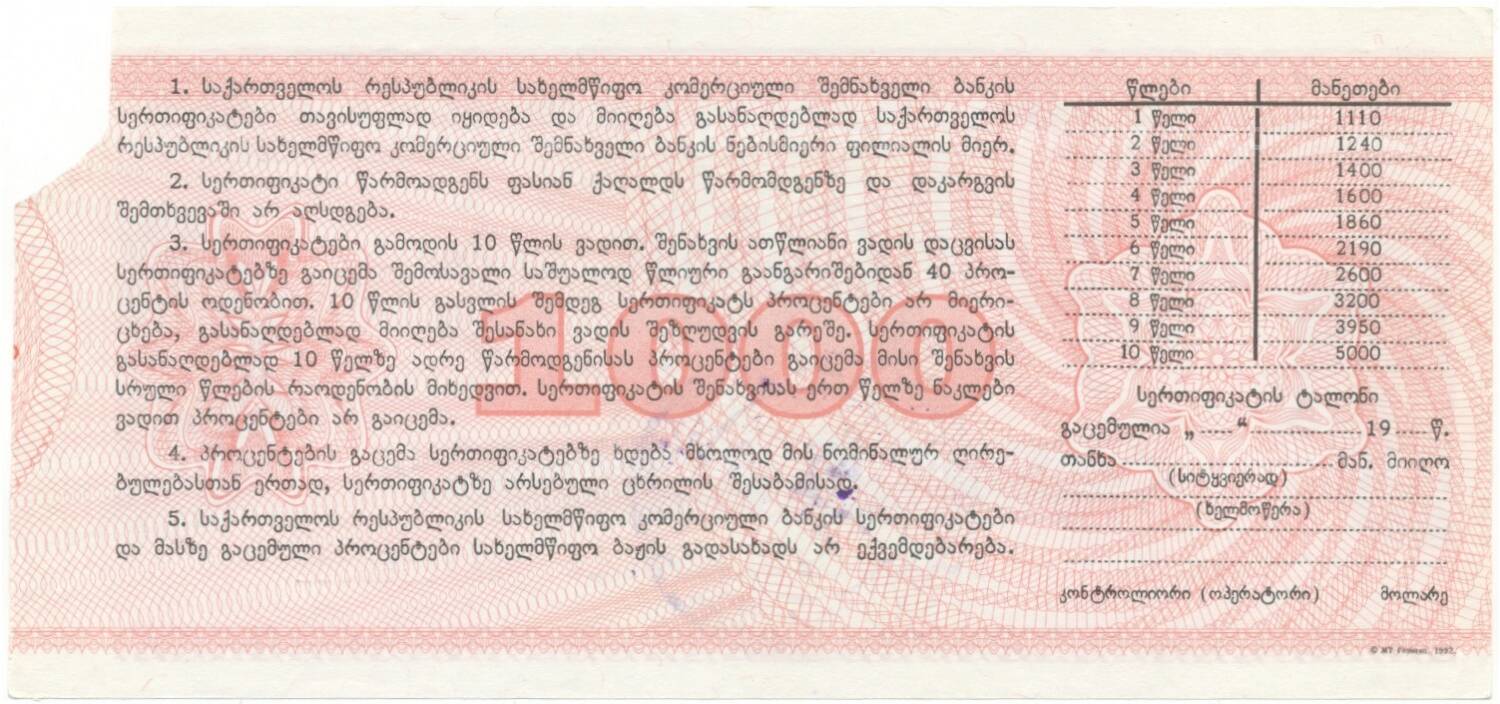 1. საქართველოს რესპუბლიკის სახელმწიფო კომერციული შემნახველი ბანკის
სერთიფიკატები თავისუფლად იყიდება და მიიღება გასანაღდებლად საქართველოს
რესპუბლიკის სახელმწიფო კომერციული შემნახველი ბანკის ნებისმიერი ფილიალის მიერ.
2. სერთიფიკატი წარმოადგენს ფასიან ქაღალდს წარმომდგენზე და დაკარგვის
შემთხვევაში არ აღსდგება.
3. სერთიფიკატები გამოდის 10 წლის ვადით. შენახვის ათწლიანი ვადის დაცვისას
სერთიფიკატებზე გაიცემა შემოსავალი საშუალოდ წლიური გაანგარიშებიდან 40 პრო-
ცენტის ოდენობით. 10 წლის გასვლის შემდეგ სერთიფიკატს პროცენტები არ მიერი-
ცხება, გასანაღდებლად მიიღება შესანახი ვადის შეზღუდვის გარეშე. სერთიფიკატის
გასანაღდებლად 10 წელზე ადრე წარმოდგენისას პროცენტები გაიცემა მისი შენახვის
სრული წლების რაოდენობის მიხედვით. სერთიფიკატის შენახვისას ერთ წელზე ნაკლები
ვადით პროცენტები არ გაიცემა.
4. პროცენტების გაცემა სერთიფიკატებზე ხდება მხოლოდ მის ნომინალურ ღირე-
ბულებასთან ერთად, სერთიფიკატზე არსებული ცხრილის შესაბამისად.
5. საქართველოს რესპუბლიკის სახელმწიფო კომერციული ბანკის სერთიფიკატები
და მასზე გაცემული პროცენტები სახელმწიფო ბაჟის გადასახადს არ ექვემდებარება.
1000
წლები მანეთები
1 წელი 1110
2 წელი 1240
3 წელი 1400
4 წელი 1600
5 წელი 1860
6 წელი 2190
7 წელი 2600
8 წელი 3200
9 წელი 3950
10 წელი 5000
სერთიფიკატის ტალონი
გაცემულია „ “ 19 წ.
თანხა მან. მიიღო
(სიტყვიერად)
(ხელმოწერა)
კონტროლიორი (ოპერატორი) მოლარე
© МТ Гознака. 1992.